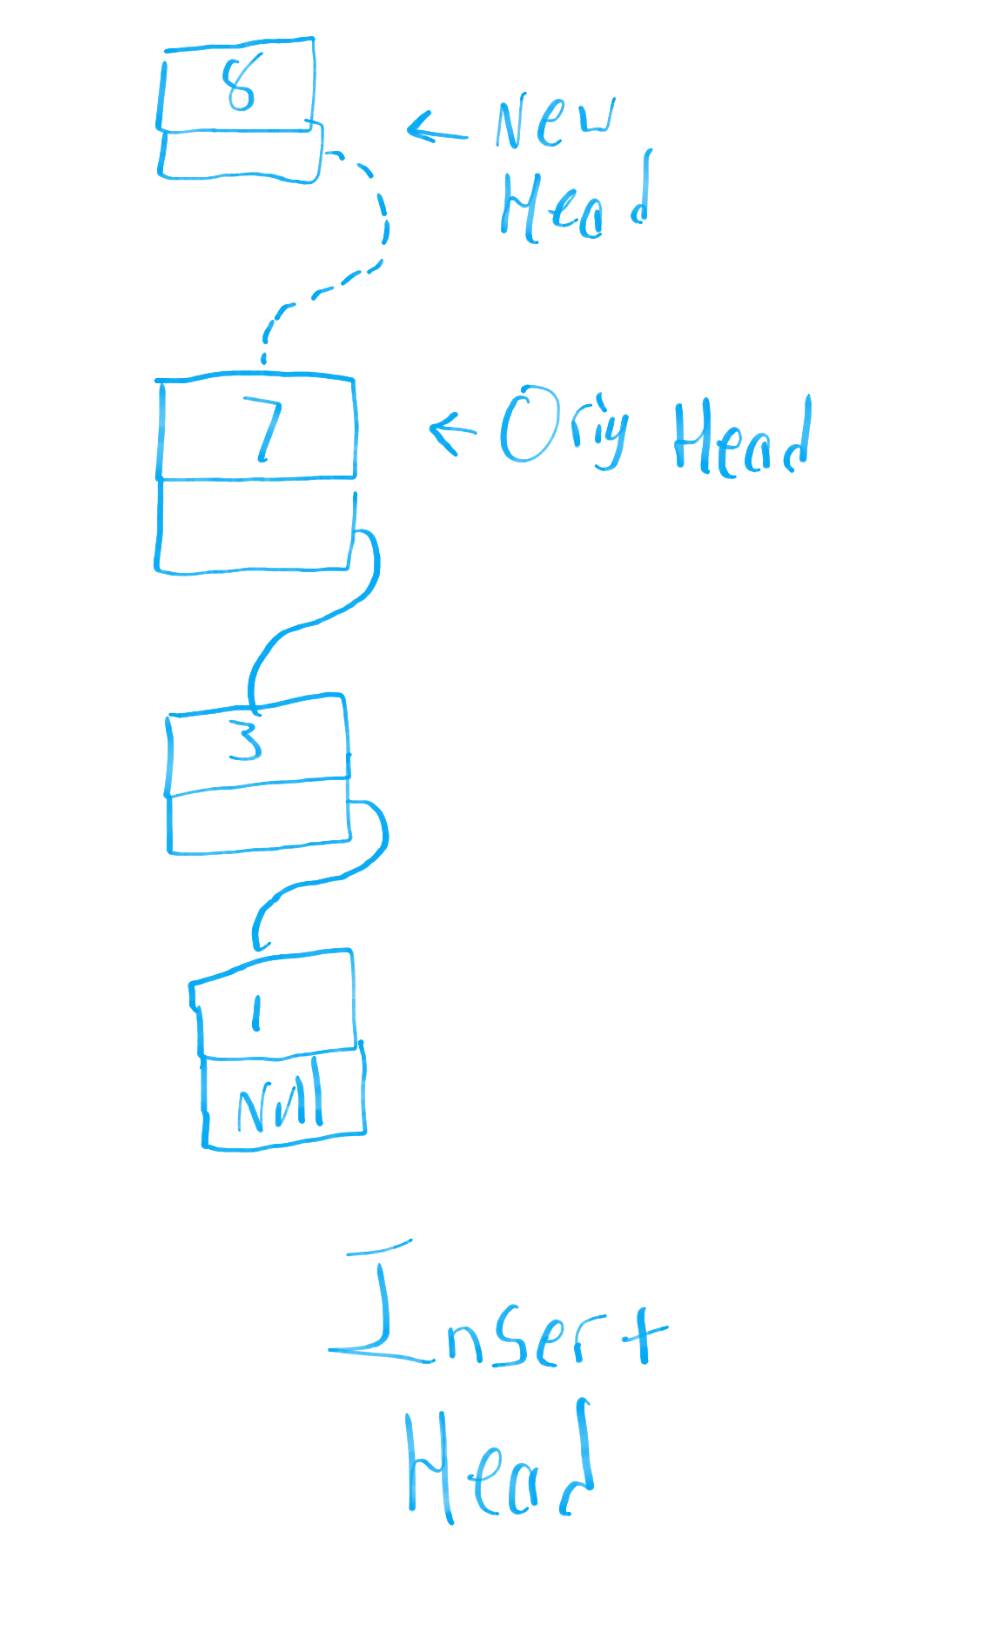 8
← New
Head
7
← Orig Head
3
1
Null
Insert
Head